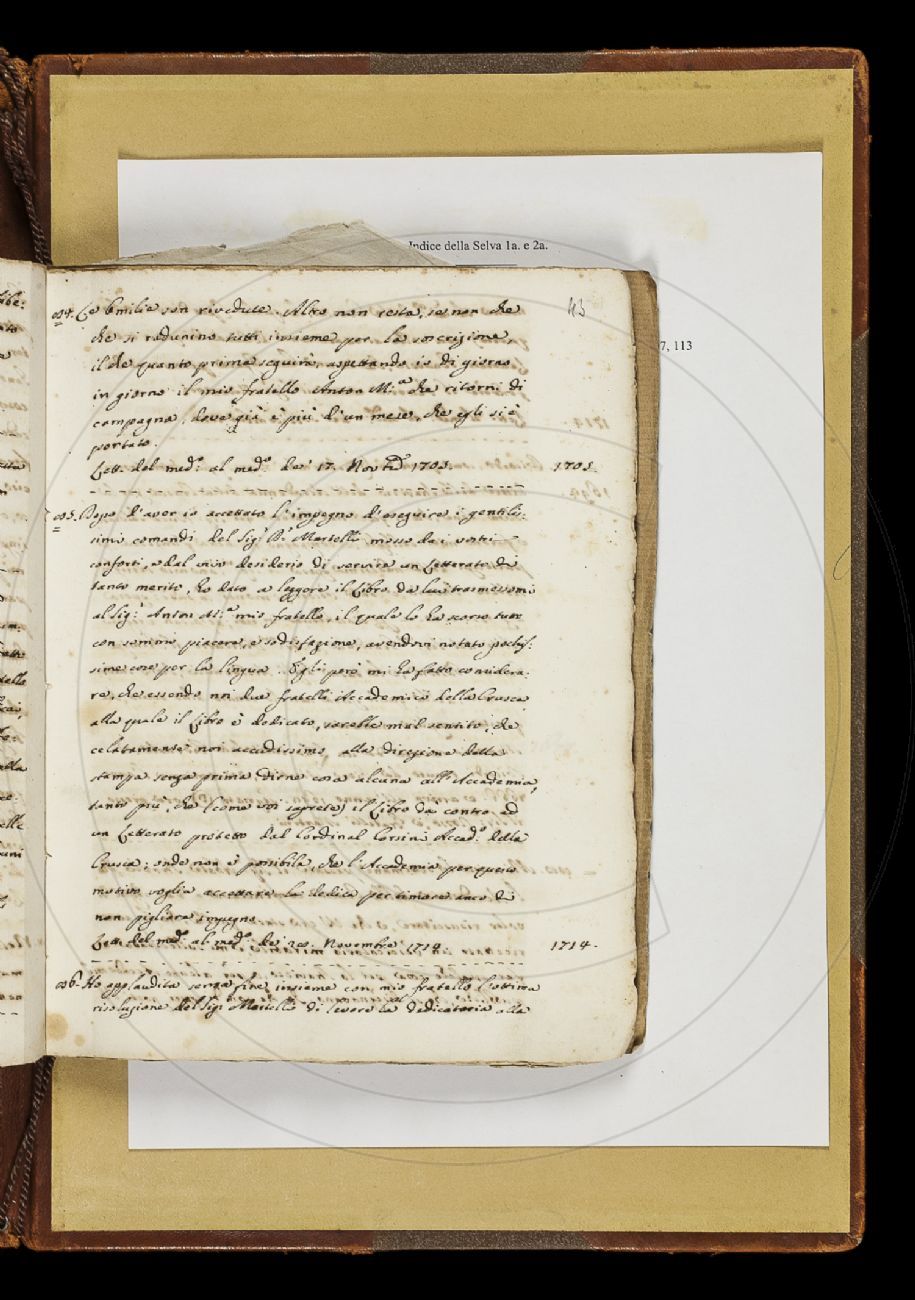 Indice della Selva 1a. e 2a.
7, 113
43
Le bmilie son rivedute. Altro non resta, se non che
che si radunino tutti insieme per la soscrizione,
il che quanto prima seguirà, aspettando io di giorno
in giorno il mio fratello Anton M.ª che ritorni di
campagna, dove già è più d'un mese, che egli si è
portato.
Lett. del med.º al med.º de' 17. 1703. 1703.
Dopo d'aver io accettato l'impegno d'eseguire i gentilis:
simi comandi del Sig.r Martelli mosso da i vostri
conforti, e dal vivo desiderio di servire un Letterato di
tanto merito, ho dato a leggere il Libro da lui trasmessomi
al Sig.r Anton M.ª mio fratello, il quale lo ha scorso tutto
con sommo piacere, e sodisfazione, avendovi notato pochis:
sime cose per la lingua. Egli però mi ha fatto considera:
re, che essendo noi due fratelli Accademici della Crusca
alla quale il Libro è dedicato, sarebbe mal sentito, che
celatamente noi accudissimo alla direzione della
stampa senza prima dirne cosa alcuna all'Accademia,
tanto più, che (come voi saprete) il Libro dà contro ad
un Letterato protetto dal Cardinal Corsini Accad.º della
Crusca; onde non è possibile, che l'Accademia per questo
motivo voglia accettare la dedica per timore anco di
non pigliare impegno.
Lett. del med.º al med.º de' 20. Novembre 1714. 1714.
Ho applaudito senza fine insieme con mio fratello l'ottima
risoluzione del Sig.r Martelli di levare la dedicatoria alla